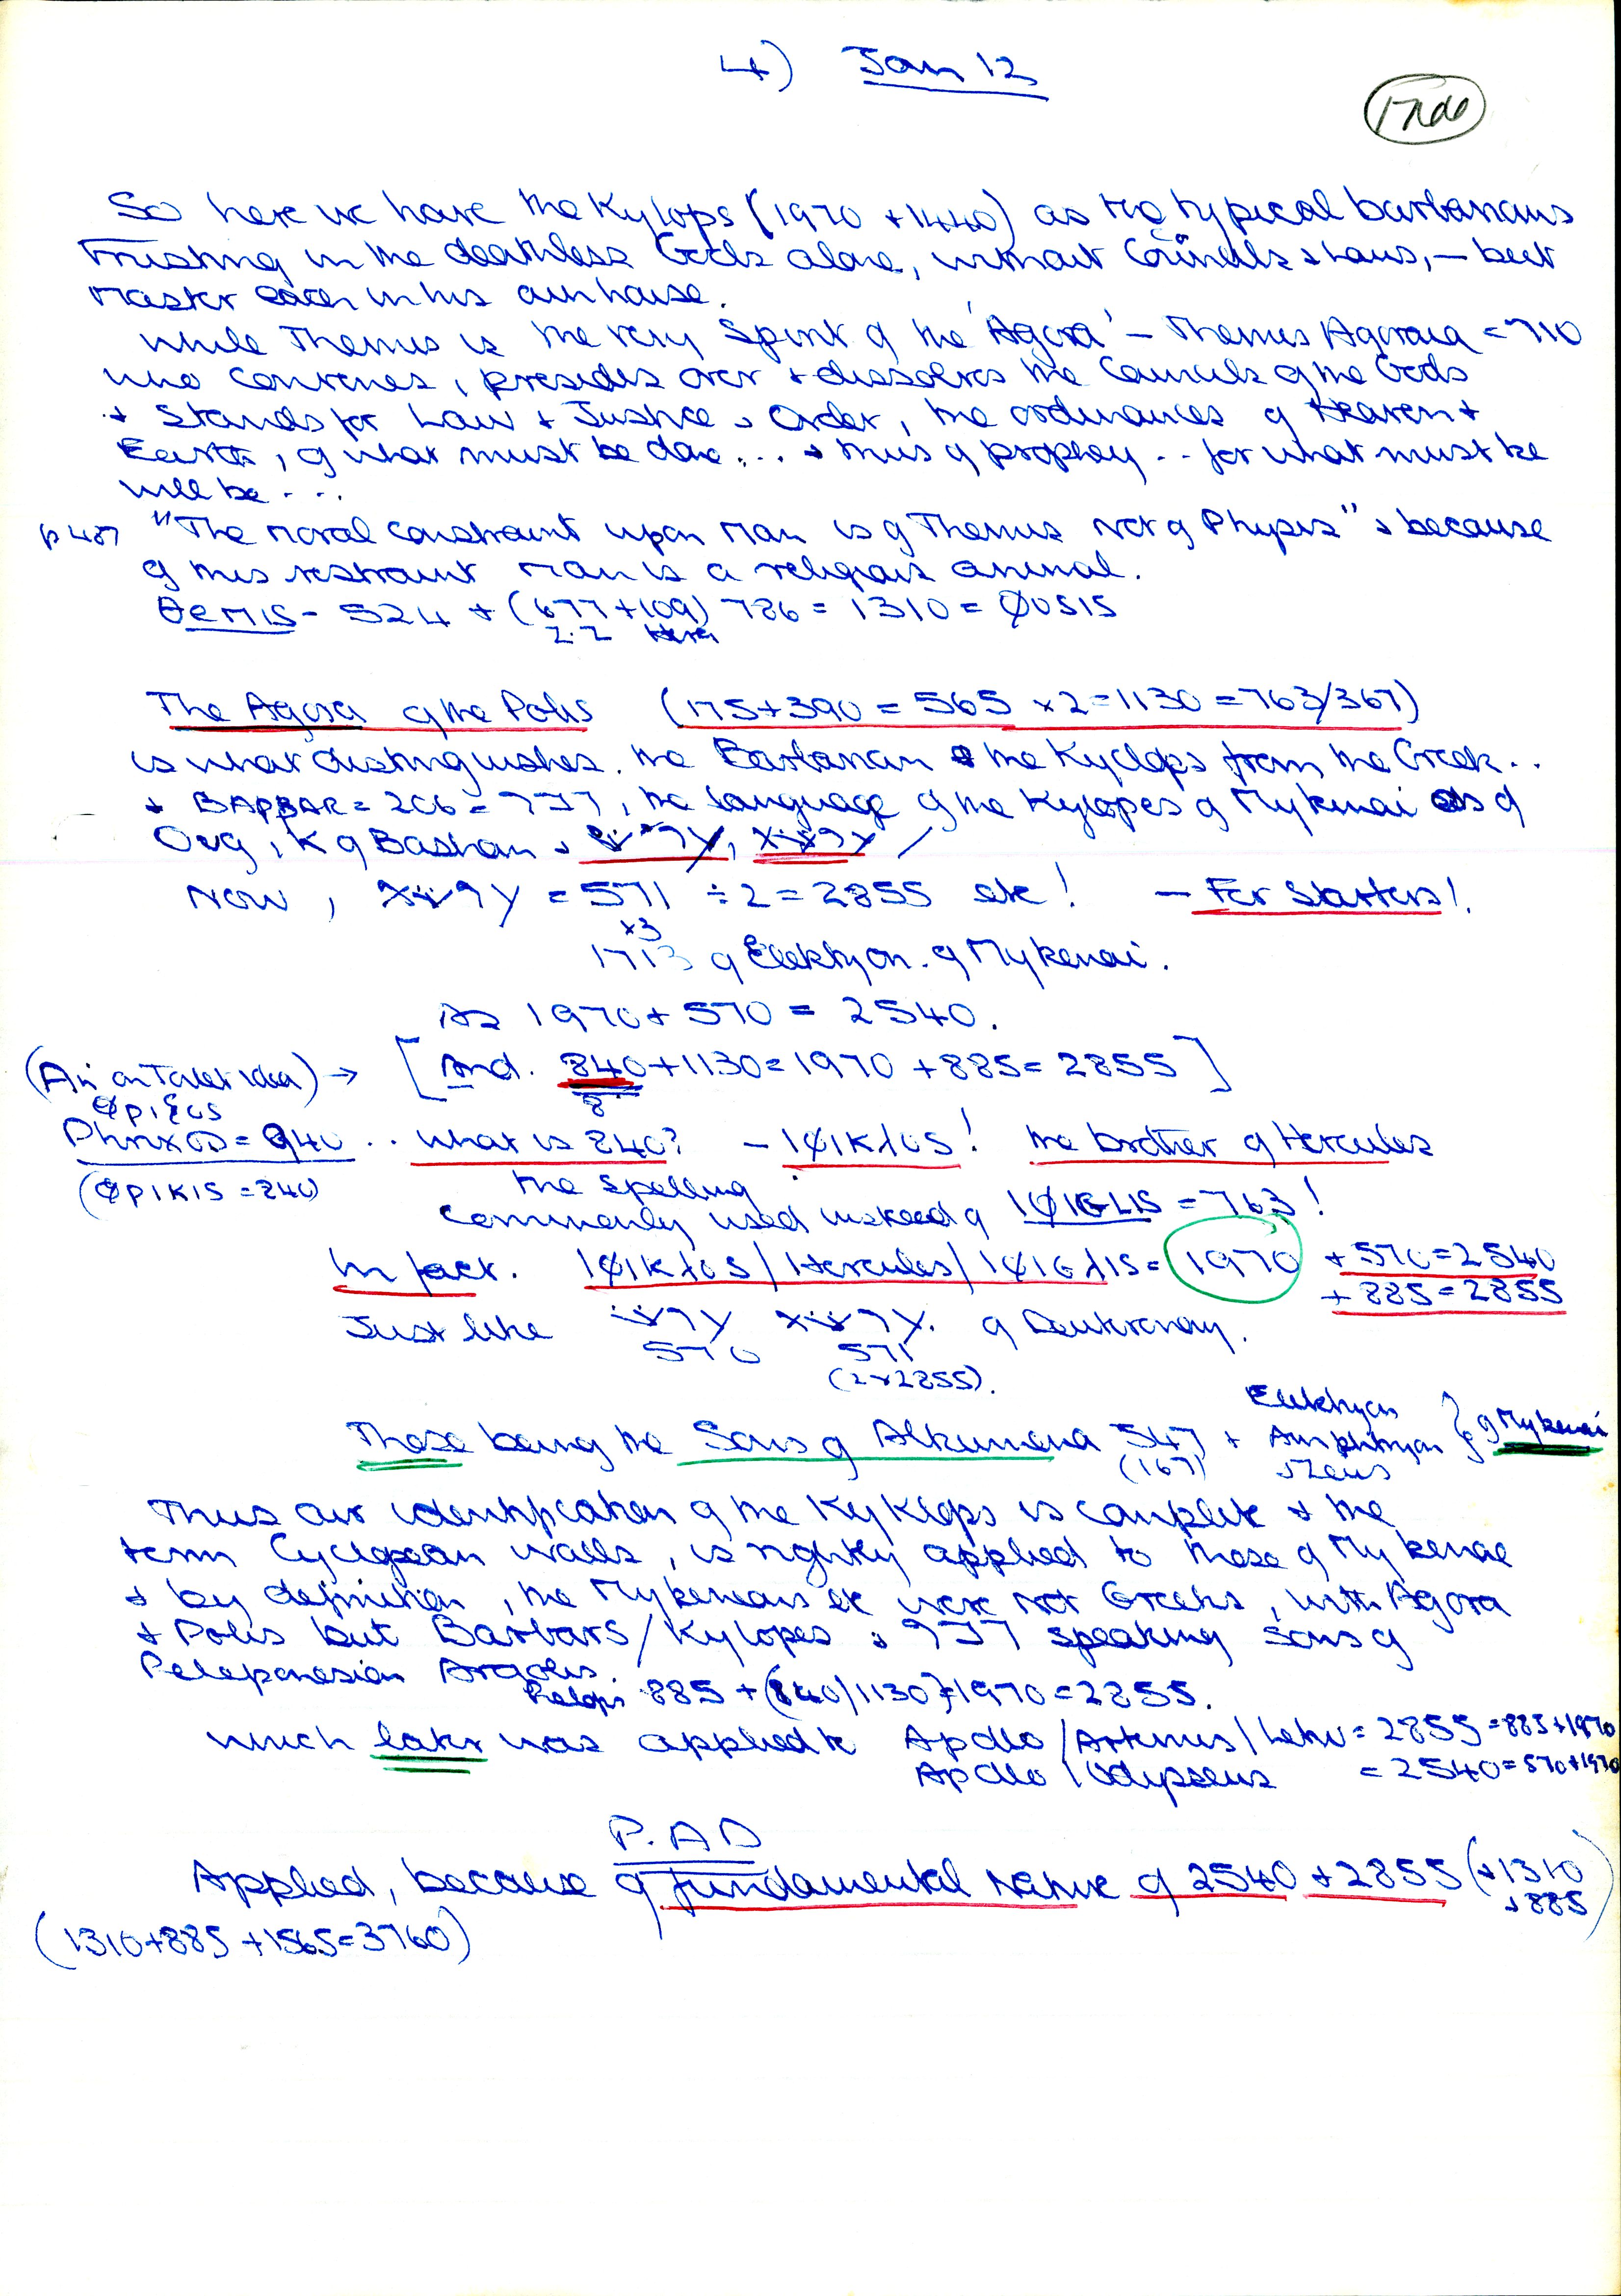 4) Jan 12
So here we have the Kylops (1970 + 1440) as the typical barbarians
Trusting in the deathless Gods alone, without Councils & Laws, – but
master each in his own house.
While Themis is the very Spirit of the 'Agora' – Themis Agoraia = 710
who convenes, presides over + dissolves the Councils of the Gods
+ Stands for Law + Justice & Order, the ordinances of Heaven +
Earth, of what must be done... & thus of prophey .. for what must be
will be ...
p 487 "The moral constraint upon man is of Themis not of Physis" & because
of this restraint man is a religious animal.
θεMIS - 524 + (677+109) 786 = 1310 = ΦUSIS
2.2 Hera
The Agora of the Polis (175+390 = 565 x2=1130 = 763/367)
is what distinguishes the Barbarian & the Kyclops from the Greek..
+ BAPBAR = 206 = , the language of the Kylopes of Mykenai as of
Oug, K of Bashan &
Now, = 571 ÷2 = 2855 etc! – For Starters!
x3
1713 of Elektryon. of Mykenai.
As 1970 + 570 = 2540.
(An on Taker idea) → [And. 840+1130=1970 +885= 2855]
8
Phrixos = 940 .. what is 840? – IΦIKλOS! the brother of Hercules
(ΦPIKIS = 840)
the spelling
commonly used instead of IΦIGLIS = 763!
In fact. IΦIKλOS/Hercules/IΦIGλIS = 1970 +570=2540
+885=2855
Just like of Deuteronomy.
570 571
(2x2855).
Elektryon
These being the Sons of Alkumena 547 + Amphitryon } of Mykenai
(167) & Zeus
Thus our identification of the KyKlops is complete & the
term Cyclopean walls, is rightly applied to those of Mykenae
& by definition, the Mykeneans etc were not Greeks, with Agora
+ Polis but Barbars/Kylopes & speaking Sons of
Peleponesian Argolis.
Pelops 885 + (840/1130)=1970=2855.
which later was applied to Apollo/Artemis/Leto = 2855 =885+1970
Apollo/Odysseus = 2540=570+1970
P.AD
Applied, because of fundamental nature of 2540 + 2855 (+1310
+885)
(1310+885+1565=3760)